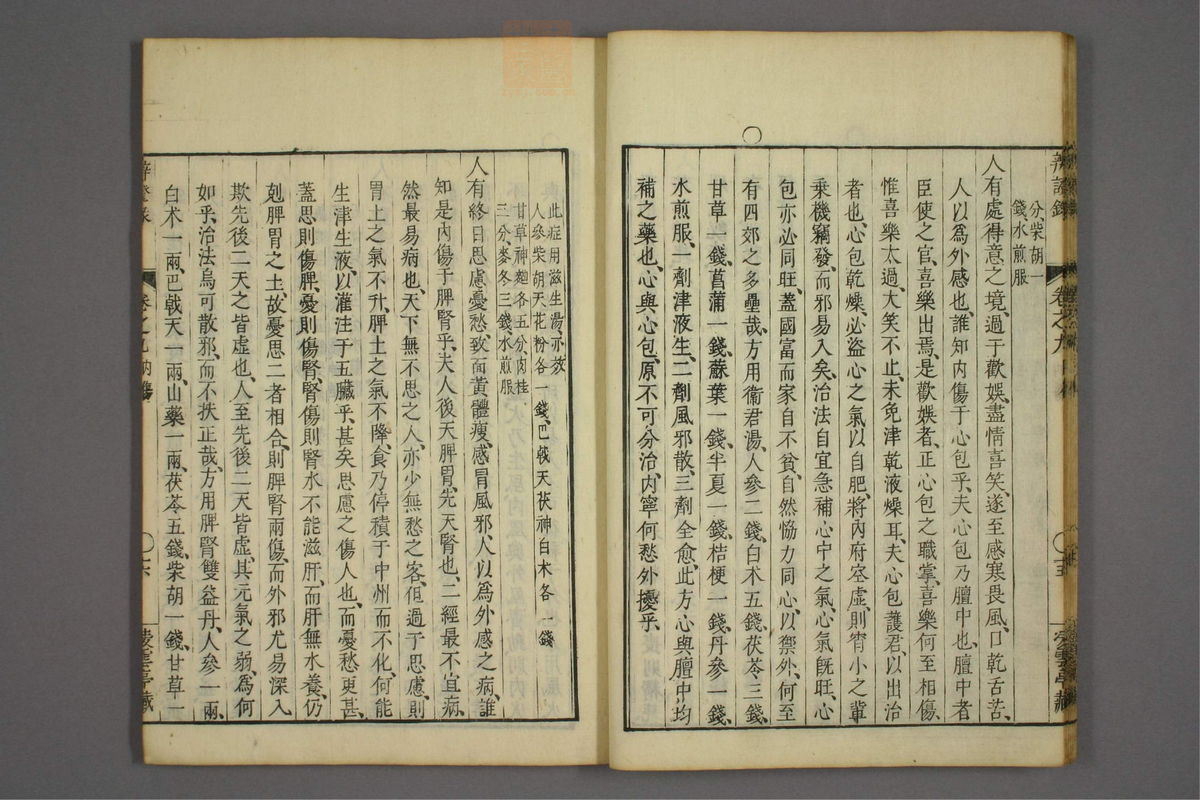 分、柴胡一
錢、水煎服、
人有處得意之境、過于歡娛、盡情喜笑、遂至感寒畏風、口乾舌苦、
人以爲外感也、誰知內傷于心包乎、夫心包乃膻中也、膻中者
臣使之官、喜樂出焉、是歡娛者、正心包之職掌、喜樂何至相傷、
惟喜樂太過、大笑不止、未免津乾液燥耳、夫心包護君、以出治
者也、心包乾燥、必盜心之氣以自肥、將內府空虛、則宵小之輩
乘機竊發、而邪易入矣、治法自宜急補心中之氣、心氣旣旺、心
包亦必同旺、蓋國富而家自不貧、自然恊力同心、以禦外、何至
有四郊之多壘哉、方用衞君湯、人參二錢、白术五錢、茯苓三錢、
甘草一錢、菖蒲一錢、蘇葉一錢、半夏一錢、桔梗一錢、丹參一錢、
水煎服、一劑津液生、二劑風邪散、三劑全愈、此方心與膻中均
補之藥也、心與心包、原不可分治、內寧何愁外擾乎、
此症用滋生湯、亦效
人參柴胡天花粉各一錢、巴戟天茯神白术各二錢
甘草神麯各五分、肉桂
三分、麥冬三錢、水煎服
人有終日思慮憂愁、致面黃體瘦、感冒風邪、人以爲外感之病、誰
知是內傷于脾腎乎、夫人後天脾胃、先天腎也、二經最不宜病、
然最易病也、天下無不思之人、亦少無愁之客、但過于思慮、則
胃土之氣不升、脾土之氣不降、食乃停積于中州而不化、何能
生津生液、以灌注于五臟乎、甚矣思慮之傷人也、而憂愁更甚、
蓋思則傷脾、憂則傷腎、腎傷則腎水不能滋肝、而肝無水養、仍
剋脾胃之土、故憂思二者相合、則脾腎兩傷、而外邪尤易深入
欺先後二天之皆虛也、人至先後二天皆虛、其元氣之弱、爲何
如乎、治法烏可散邪、而不扶正哉、方用脾腎雙益丹、人參一兩、
白术一兩、巴戟天一兩、山藥一兩、茯苓五錢、柴胡一錢、甘草一